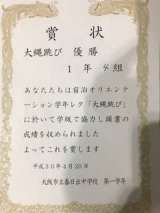 賞状
大縄跳び 優勝
1年4組
あなたたちは宿泊オリエンテ
ーション学年レク「大縄跳び」
に於いて学級で協力し頭書の
成績を収められました
よってこれを賞します
平成30年4月28日
大阪市立春日出中学校 第一学年